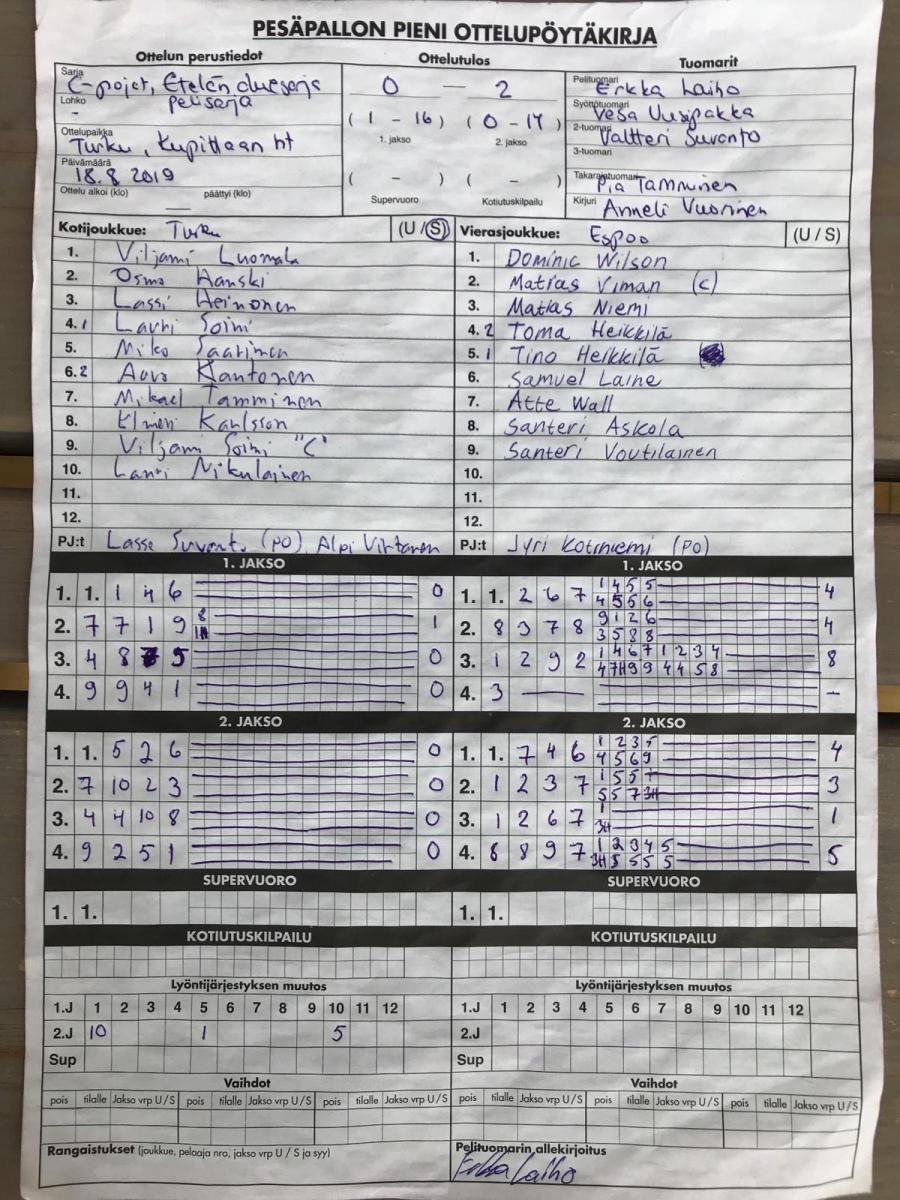 PESÄPALLON PIENI OTTELUPÖYTÄKIRJA
Ottelun perustiedot Ottelutulos Tuomarit
Sarja C-pojat, Etelän aluesarja
Lohko - pelisarja
Ottelupaikka Turku, Kupittaan ht
Päivämäärä 18.8 2019
Ottelu alkoi (klo) päättyi (klo)
0 — 2
(1 - 16) (0 - 14)
1. jakso 2. jakso
( - ) ( - )
Supervuoro Kotiutuskilpailu
Pelituomari Erkka Laiho
Syöttötuomari Vesa Uusipakka
2-tuomari Valtteri Suvanto
3-tuomari
Takarajatuomari Pia Tamminen
Kirjuri Anneli Vuorinen
Kotijoukkue: Turku (U / S)
1. Viljami Luomala
2. Osmo Hanski
3. Lassi Heinonen
4. 1 Lauri Soini
5. Miko Saarinen
6. 2 Aaro Kantonen
7. Mikael Tamminen
8. Elmeri Karlsson
9. Viljami Soini "C"
10. Lauri Nikulainen
11.
12.
PJ:t Lasse Suvant. (PO), Alpi Virtanen
Vierasjoukkue: Espoo (U / S)
1. Dominic Wilson
2. Matias Viman (c)
3. Matias Niemi
4. 2 Toma Heikkilä
5. 1 Tino Heikkilä
6. Samuel Laine
7. Atte Wall
8. Santeri Askola
9. Santeri Voutilainen
10.
11.
12.
PJ:t Jyri Kotiniemi (PO)
1. JAKSO
1. 1. 1 4 6 0
2. 7 7 1 9 8 1
3. 4 8 5 0
4. 9 9 4 1 0
1. JAKSO
1. 1. 2 6 7 1 4 5 5 4
4 5 5 6
2. 8 3 7 8 9 1 2 6 4
3 5 8 8
3. 1 2 9 2 1 4 6 7 1 2 3 4 8
4 7H 9 9 4 4 5 8
4. 3 — –
2. JAKSO
1. 1. 5 2 6 0
2. 7 10 2 3 0
3. 4 4 10 8 0
4. 9 2 5 1 0
2. JAKSO
1. 1. 7 4 6 1 2 3 5 4
4 5 6 9
2. 1 2 3 7 1 5 5 3
5 5 7 3H
3. 1 2 6 7 1 1
3H
4. 8 8 9 7 1 2 3 4 5 5
3H 5 5 5 5
SUPERVUORO SUPERVUORO
1. 1. 1. 1.
KOTIUTUSKILPAILU KOTIUTUSKILPAILU
Lyöntijärjestyksen muutos Lyöntijärjestyksen muutos
1.J 1 2 3 4 5 6 7 8 9 10 11 12 1.J 1 2 3 4 5 6 7 8 9 10 11 12
2.J 10 1 5 2.J
Sup Sup
Vaihdot Vaihdot
pois tilalle Jakso vrp U / S pois tilalle Jakso vrp U / S pois tilalle Jakso vrp U / S pois tilalle Jakso vrp U / S pois tilalle Jakso vrp U / S pois tilalle Jakso vrp U / S
Rangaistukset (joukkue, pelaaja nro, jakso vrp U / S ja syy) Pelituomarin allekirjoitus
Erkka Laiho